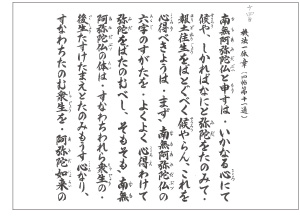 機法一体章(四帖第十一通)
南無阿弥陀仏と申すは・いかなる心にて
候や、しかればなにと弥陀をたのみて・
報土往生をばとぐべく候やらん、これを
心得べきようは・まず・南無阿弥陀仏の
六字のすがたを・よくよく心得わけて
弥陀をばたのむべし、そもそも・南無
阿弥陀仏の体は・すなわちわれら衆生の・
後生たすけたまえとたのみもうす心なり、
すなわちたのむ衆生を・阿弥陀如来の